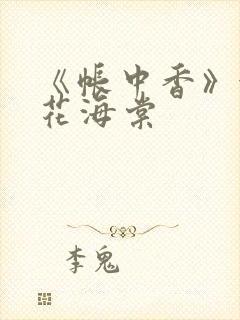 《帐中香》
花海棠
李鬼